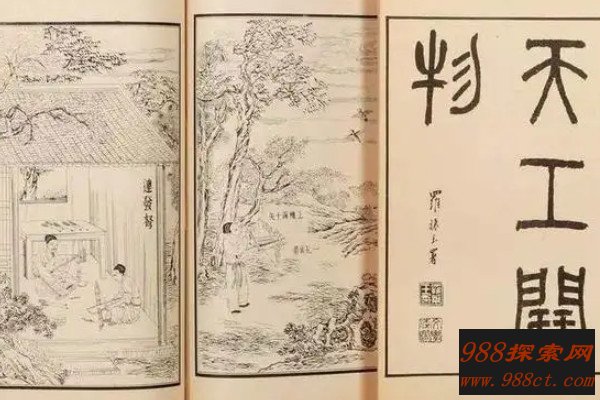 天工開
物
羅振玉署
連發弩
988探索网
www.988ct.com